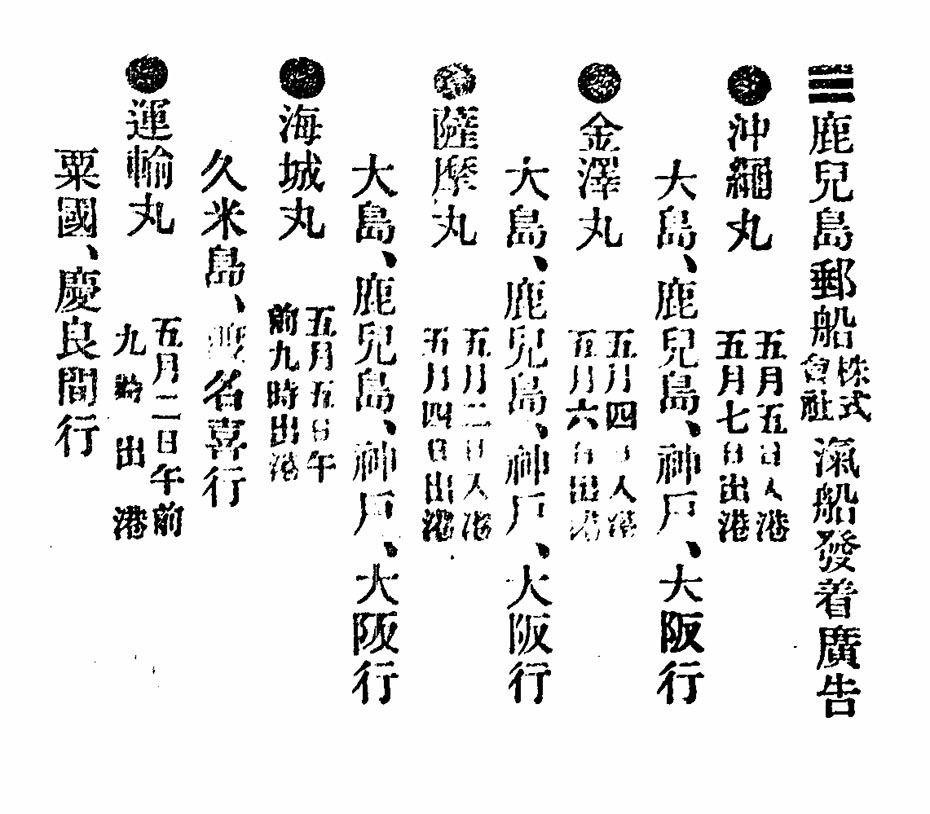 鹿兒島郵船株式會社滊船發着廣告
●沖繩丸 五月五日入港 五月七日出港
大島、鹿兒島、神戸、大阪行
●金澤丸 五月四日入港 五月六日出港
大島、鹿兒島、神戸、大阪行
●薩摩丸 五月二日入港 五月四日出港
大島、鹿兒島、神戸、大阪行
●海城丸 五月五日午前九時出港
久米島、渡名喜行
●運輸丸 五月二日午前九時出港
粟國、慶良間行